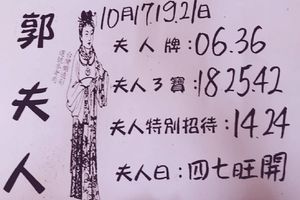 郭夫人
10月17.19.21日
夫人牌:06.36
夫人3寶:182542
夫人特別招待:14.24
夫人日:四七旺開